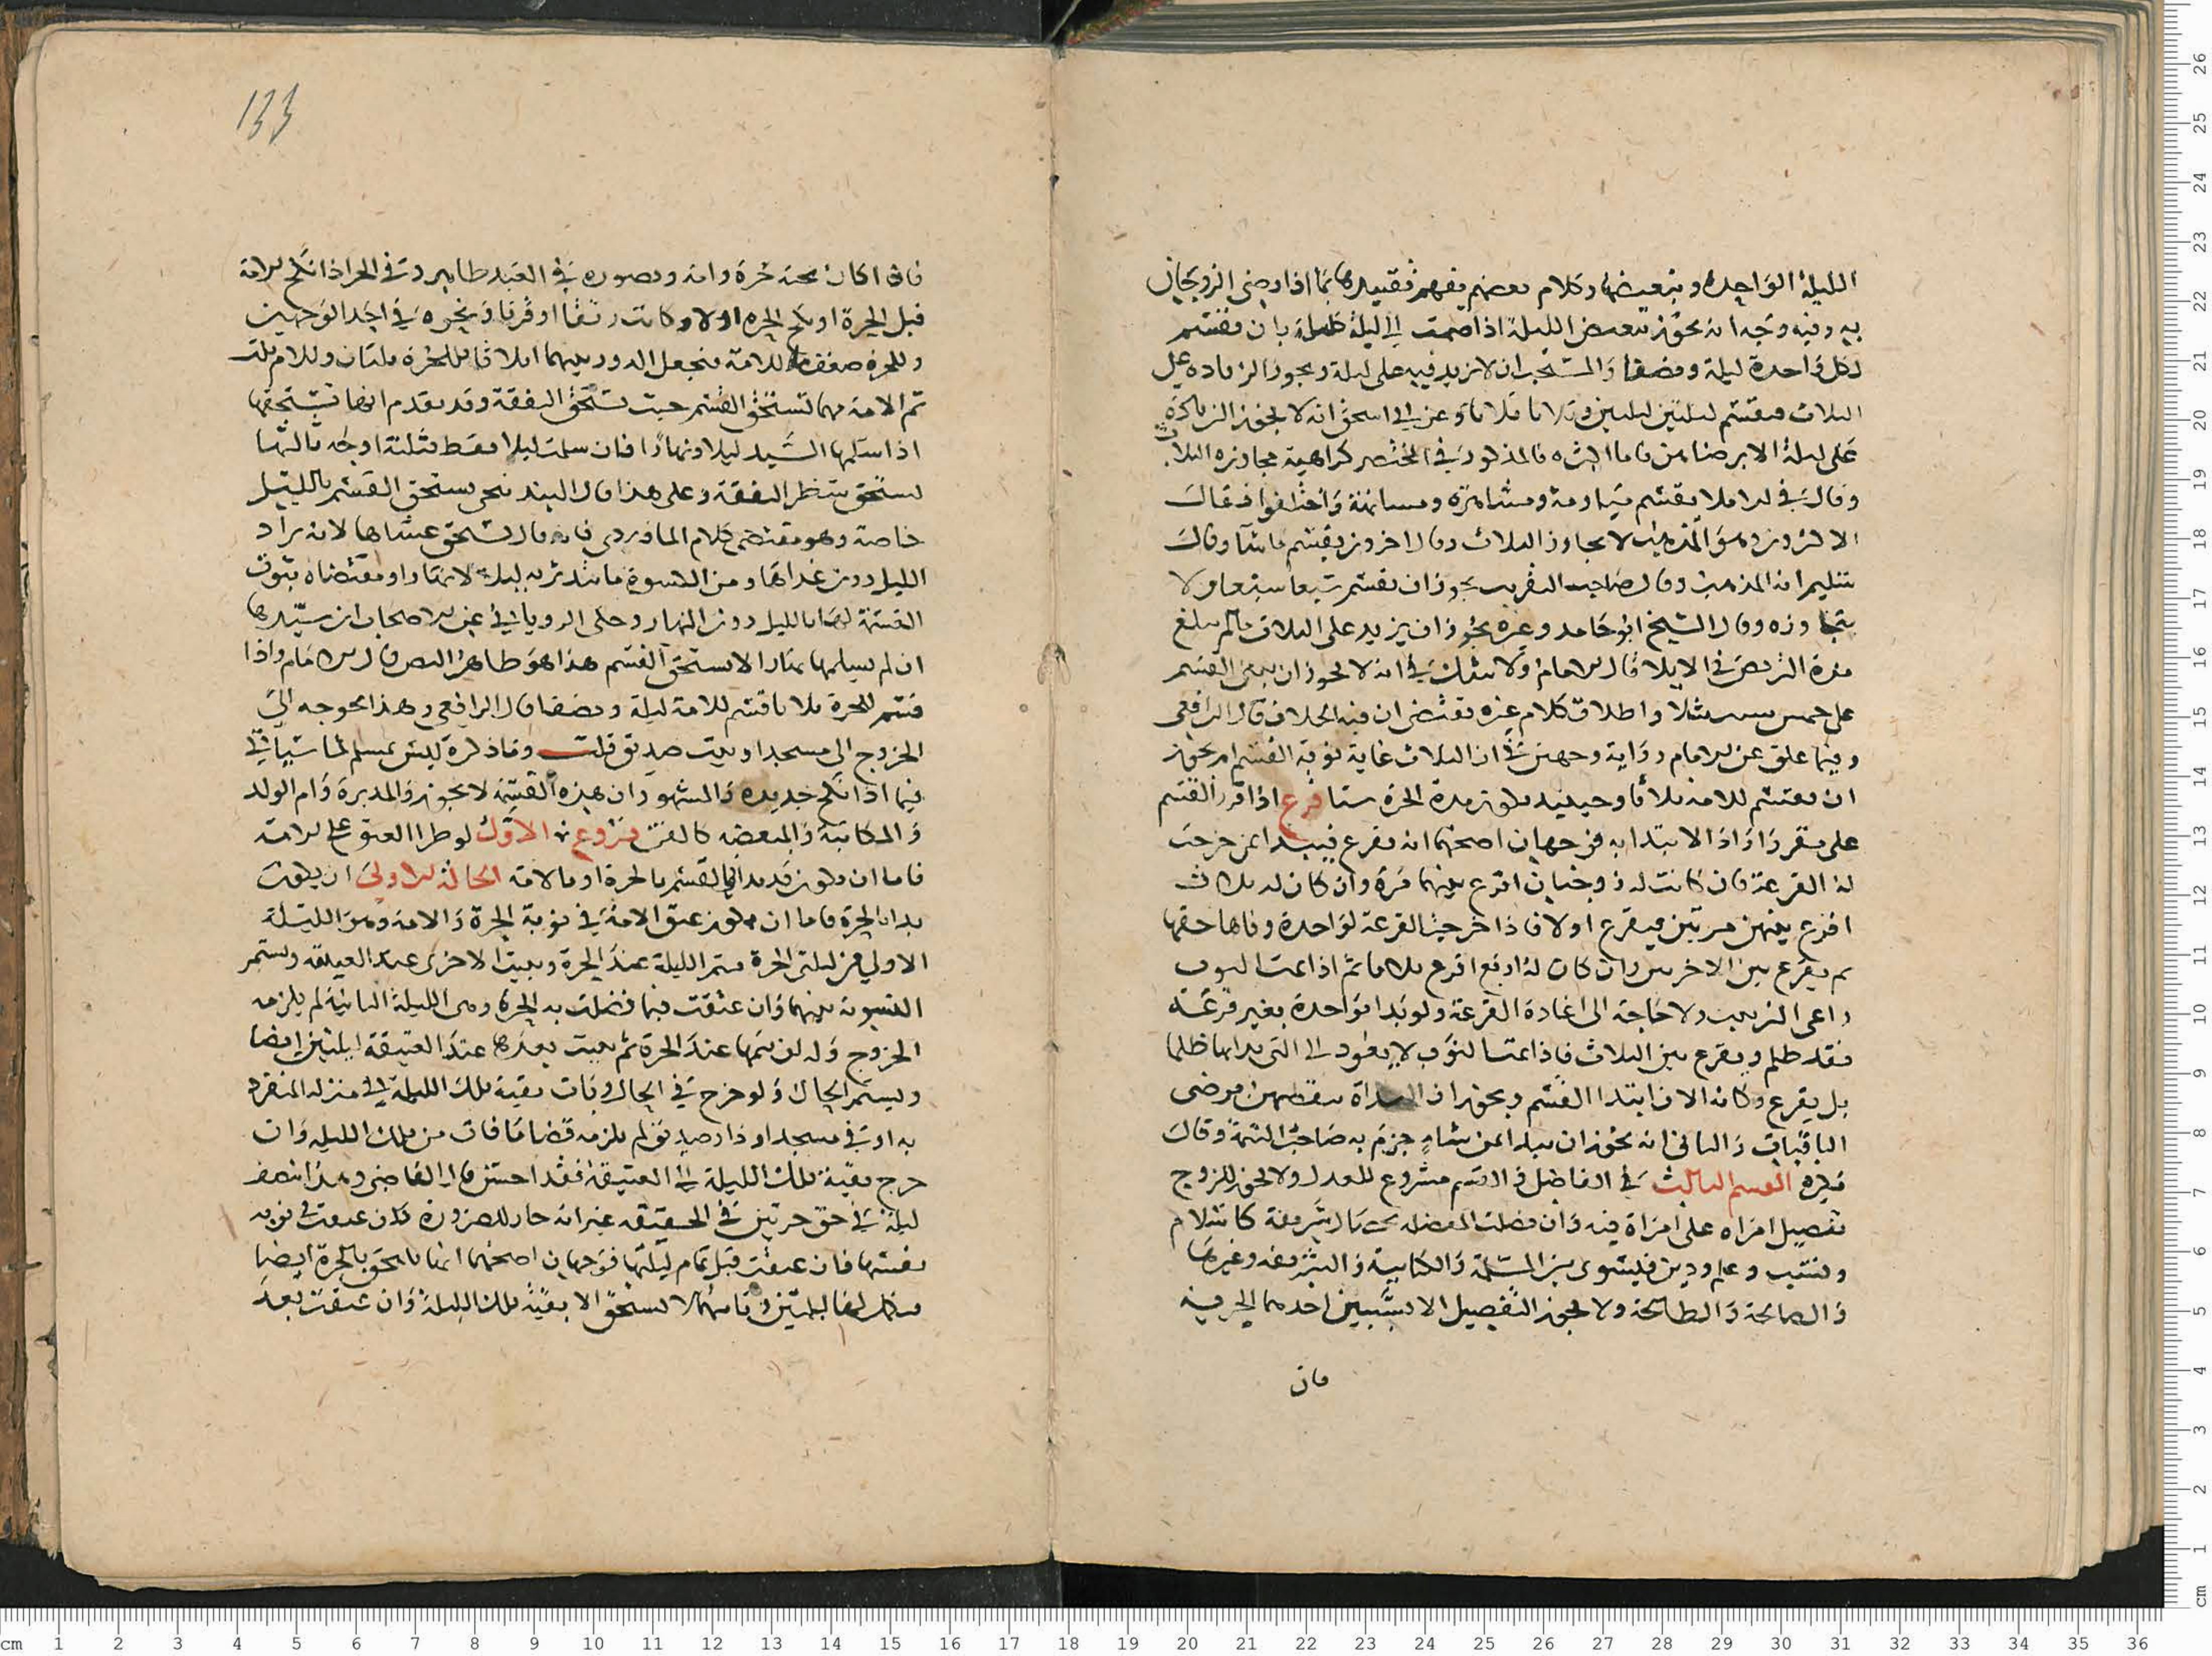 الليلة الواحدة وتبعيضها وكلام بعضهم يفهم تقييدها بما اذا رضي الزوجان
به وفيه وجه انه يجوز تبعيض الليلة اذا ضمت الى ليلة كاملة بان يقسم
لكل واحدة ليلة ونصفا والمستحب ان لا يزيد فيه على ليلة ويجوز الزيادة على
الثلاث فيقسم ليلتين ليلتين وثلاثا ثلاثا وعن ابي اسحق انه لا يجوز الزيادة
على ليلة الا برضاهن فاما اكثره فالمذكور في المختصر كراهية مجاوزة الثلاث
وقال في الاملا يقسم مياومة ومشاهرة ومسانهة واختلفوا فقال
الاكثرون وهو المذهب لا يجاوز الثلاث وقال اخرون يقسم ما شا وقال
سليم انه المذهب وقال صاحب التقريب يجوز ان يقسم سبعا سبعا ولا
يتجاوزه وقال الشيخ ابو حامد وغيره يجوز ان يزيد على الثلاث ما لم يبلغ
مدة التربص في الايلا قال الامام ولا شك في انه لا يجوز ان يبنى القسم
على خمس سنين مثلا واطلاق كلام غيره يقتضي ان فيه الخلاف قال الرافعي
وفيما علق عن الامام رواية وجهين في ان الثلاث غاية نوبة القسم ام يجوز
ان يقسم للامة ثلاثا وحينيد يكون مدة الحرة ستا فرع اذا قرر القسم
على مقرر واراد الابتدا به فوجهان اصحهما انه يقرع فيبدا بمن خرجت
له القرعة فان كانت له زوجتان اقرع بينهما مرة وان كان له ثلاث
اقرع بينهن مرتين فيقرع اولا فاذا خرجت القرعة لواحدة وفاها حقها
ثم يقرع بين الاخريين وان كان له اربع اقرع ثلاثا ثم اذا تمت النوب
راعى الترتيب ولا حاجة الى اعادة القرعة ولو بدا بواحدة بغير قرعة
فقد ظلم ويقرع بين الثلاث فاذا تمت النوب لا يعود الى التي بدا بها ظلما
بل يقرع وكانه الان ابتدا القسم ويجوز ان مرضى
الباقيات والثاني انه يجوز ان يبدا بمن شا جزم به صاحب التتمة وقال
غيره القسم الثالث في التفاضل في القسم مشروع للعدل ولا يجوز للزوج
تفضيل امراة على امراة فيه وان فضلت المفضلة شريفة كاسلام
ونسب وعلم ودين فيسوى بين المسلمة والكتابية والشريفة وغيرها
والصالحة والطالحة ولا يجوز التفضيل الا بسببين احدهما الحرية
فان
133
فاذا كان تحته حرة وامة وتصوره في العبد ظاهر وفي الحر اذا نكح الامة
قبل الحرة او نكح الحرة اولا وكانت رتقا او قرنا ونحوه في احد الوجهين
وللحرة ضعف ما للامة فنجعل الدور بينهما اثلاثا للحرة ثلثان وللامة ثلث
ثم الامة مهما تستحق القسم حيث تستحق النفقة وقد يقدم انها تستحقها
اذا سلمها السيد ليلا ونهارا فان سلمت ليلا فقط فثلثة اوجه ثالثها
تستحق شطر النفقة وعلى هذا قال البندنيجي يستحق القسم بالليل
خاصة وهو مقتضى كلام الماوردي فانه قال تستحق عشاها لانه يراد
الليل دون غداها ومن الكسوة ما تتدثر به ليلا لا نهارا ومقتضاه ثبوت
القسمة لها بالليل دون النهار وحكى الروياني عن الاصحاب ان سيدها
ان لم يسلمها نهارا لا يستحق القسم هذا هو ظاهر النص قال الامام واذا
قسم للحرة ثلاثا قسم للامة ليلة ونصفا قال الرافعي وهذا يحوجه الى
الخروج الى مسجد او بيت صديق قلت وما ذكره ليس بمسلم لما سياتي
فيما اذا نكح جديدة والمشهور ان هذه القسمة لا يجوز والمدبرة وام الولد
والمكاتبة والمبعضة كالقن فروع الاول لو طرا العتق على الامة
فاما ان يكون قد بدا في القسم بالحرة او بالامة الحالة الاولى ان يكون
بدا بالحرة فاما ان يكون عتق الامة في نوبة الحرة والامة وهو الليلة
الاولى من ليلتي الحرة يتم الليلة عند الحرة ويبيت الاخرى عند العتيقة ويستمر
التسوية بينهما وان عتقت فيما فضلت به الحرة وهي الليلة الثانية لم يلزمه
الخروج وله ان يتمها عند الحرة ثم يبيت بعدها عند العتيقة ليلتين ايضا
ويستمر الحال ولو خرج في الحال وبات بقية تلك الليلة في منزله المنفرد
به او في مسجد او دار صديق لم يلزمه قضا ما فات من تلك الليلة وان
خرج بقية تلك الليلة الى العتيقة فقد احسن قال القاضي وهذا نصف
ليلة في حق حرتين في الحقيقة غير انه جاز للضرورة فان عتقت في نوبة
نفسها فان عتقت قبل تمام ليلتها فوجهان اصحهما انها تلتحق بالحرة ايضا
فيكمل لها ليلتين وثانيهما لا تستحق الا بقية تلك الليلة وان عتقت بعد